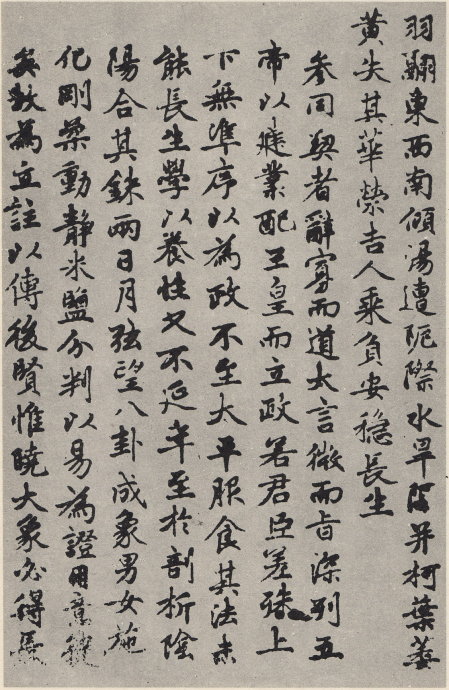 羽翮東西南傾湯遭阨際水旱隔并柯葉萎
黃失其華榮吉人乘負安穩長生
參同契者辭寡而道大言微而旨深列五
帝以建業配三皇而立政若君臣差殊上
下無準序以為政不至太平服食其法未
能長生學以養性又不延年至於剖析陰
陽合其銖兩日月弦望八卦成象男女施
化剛柔動靜米鹽分判以易為證用意健
矣故為立註以傳後賢惟曉大象必得長